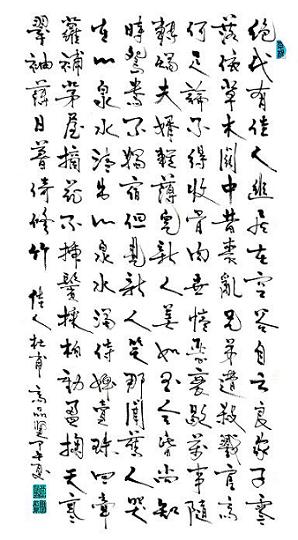 絕代有佳人幽居在空谷自云良家子零
落依草木關中昔喪亂兄弟遭殺戮官高
何足論不得收骨肉世情惡衰歇萬事隨
轉燭夫婿輕薄兒新人美如玉合昏尚知
時鴛鴦不獨宿但見新人笑那聞舊人哭
在山泉水清出山泉水濁侍婢賣珠回牽
蘿補茅屋摘花不插鬢採柏動盈掬天寒
翠袖薄日暮倚修竹 佳人 杜甫 高品